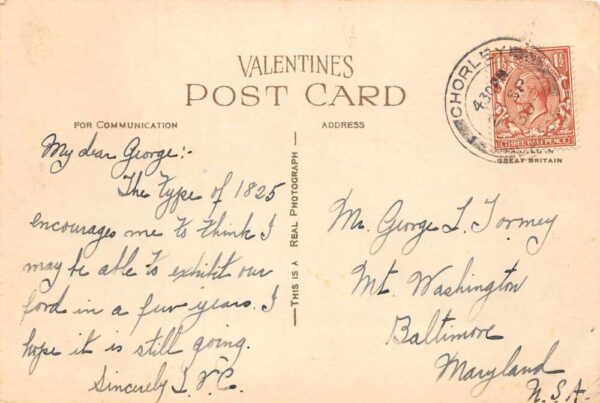 VALENTINES
POST CARD
FOR COMMUNICATION
ADDRESS
My dear George:-
The type of 1825
encourages me to think I
may be able to exhibit our
ford in a few years. I
hope it is still going.
Sincerely L.V.C.
THIS IS A REAL PHOTOGRAPH
CHORLEY
430PM
SP
1½ 1½
THREE HALFPENCE
GREAT BRITAIN
Mr. George L. Tormey
Mt. Washington
Baltimore
Maryland
U.S.A.